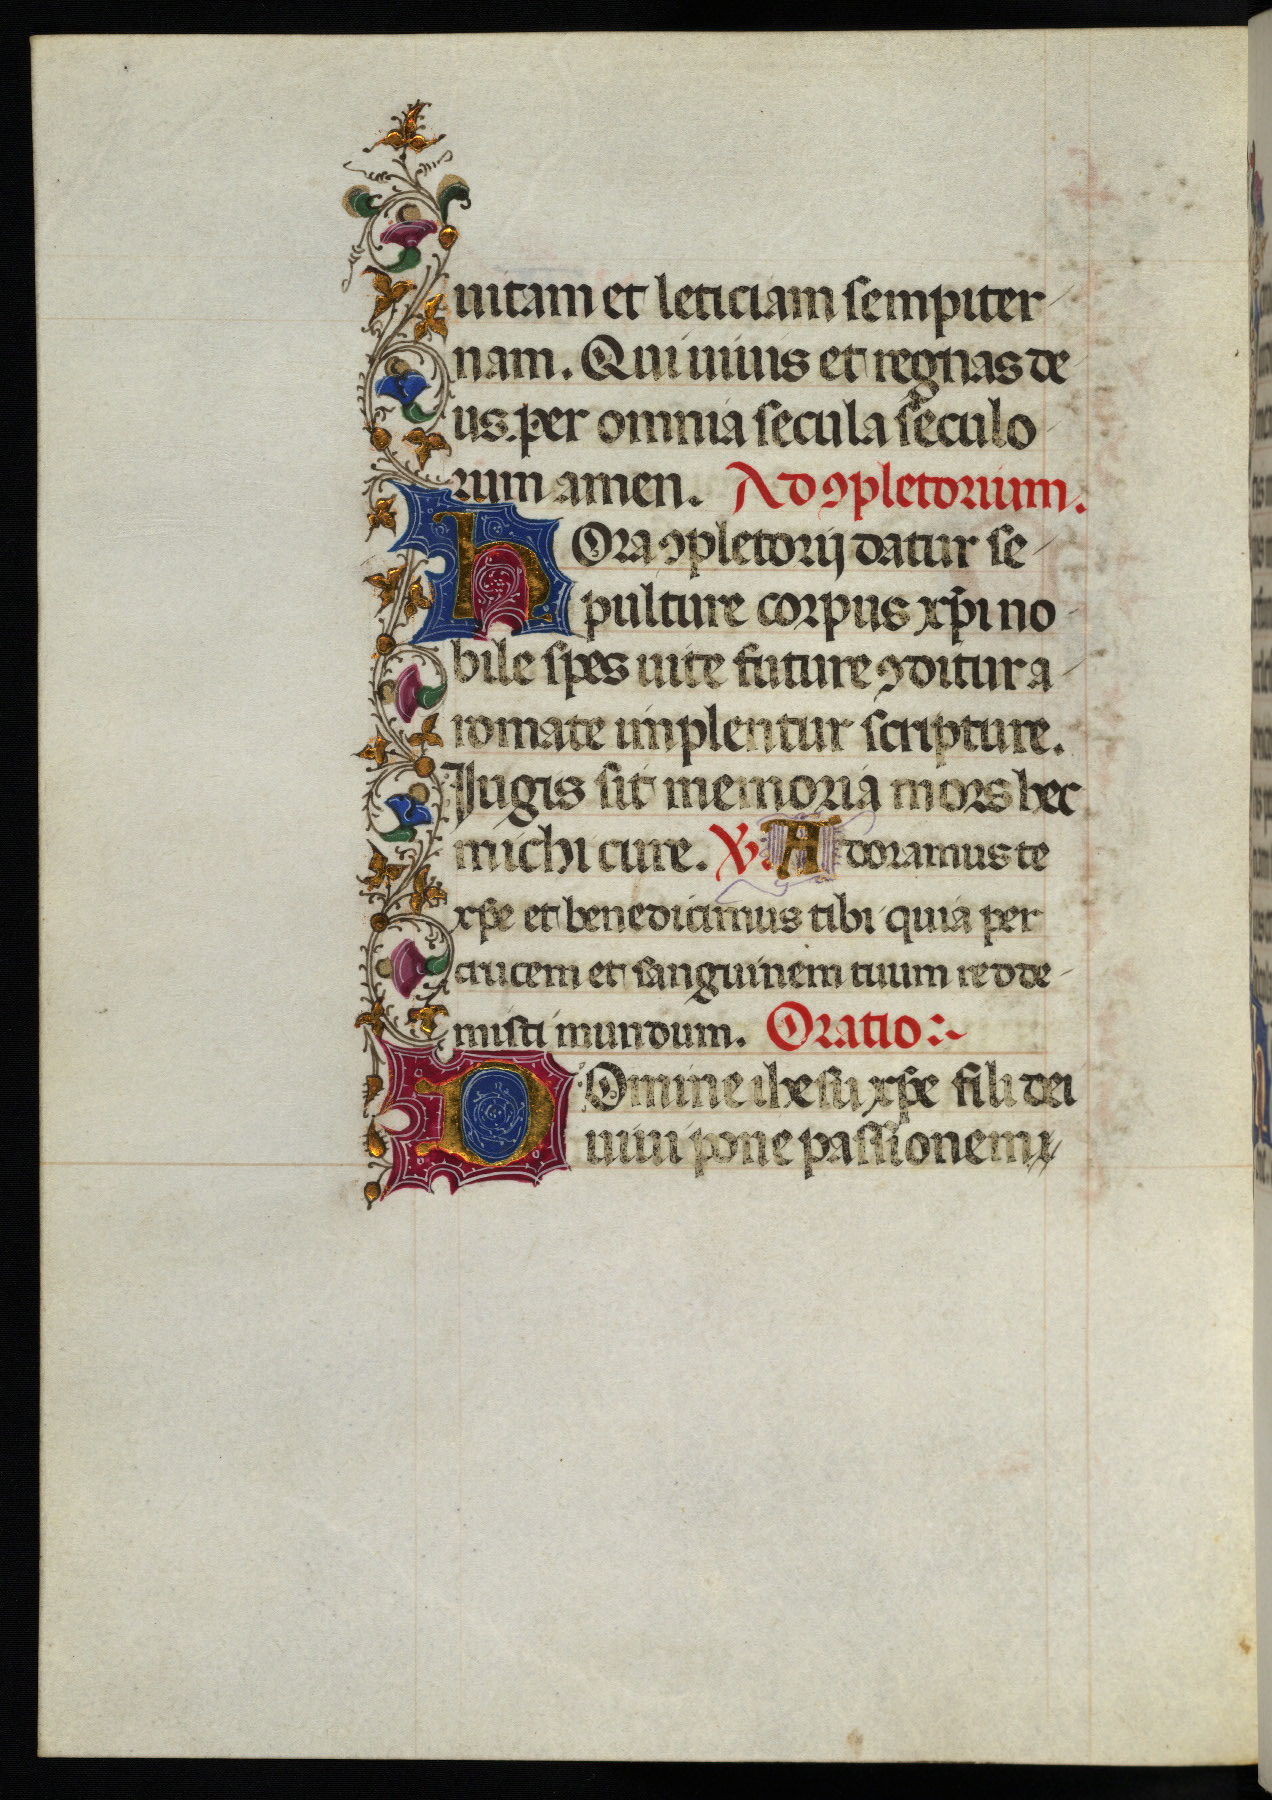 uitam et leticiam sempiter
nam. Qui uiuis et regnas de
us. per omnia secula seculo
rum amen. Ad ꝯpletorium.
hOra ꝯpletorij datur se
pulture corpus xp̄i no
bile spes uite future ꝯditur a
romate implentur scripture.
Iugis sit memoria mors hec
michi cure. ℣. Adoramus te
xp̄e et benedicimus tibi quia per
crucem et sanguinem tuum rede
misti mundum. Oratio:~
DOmine ihesu xp̄e fili dei
uiui pone passionem